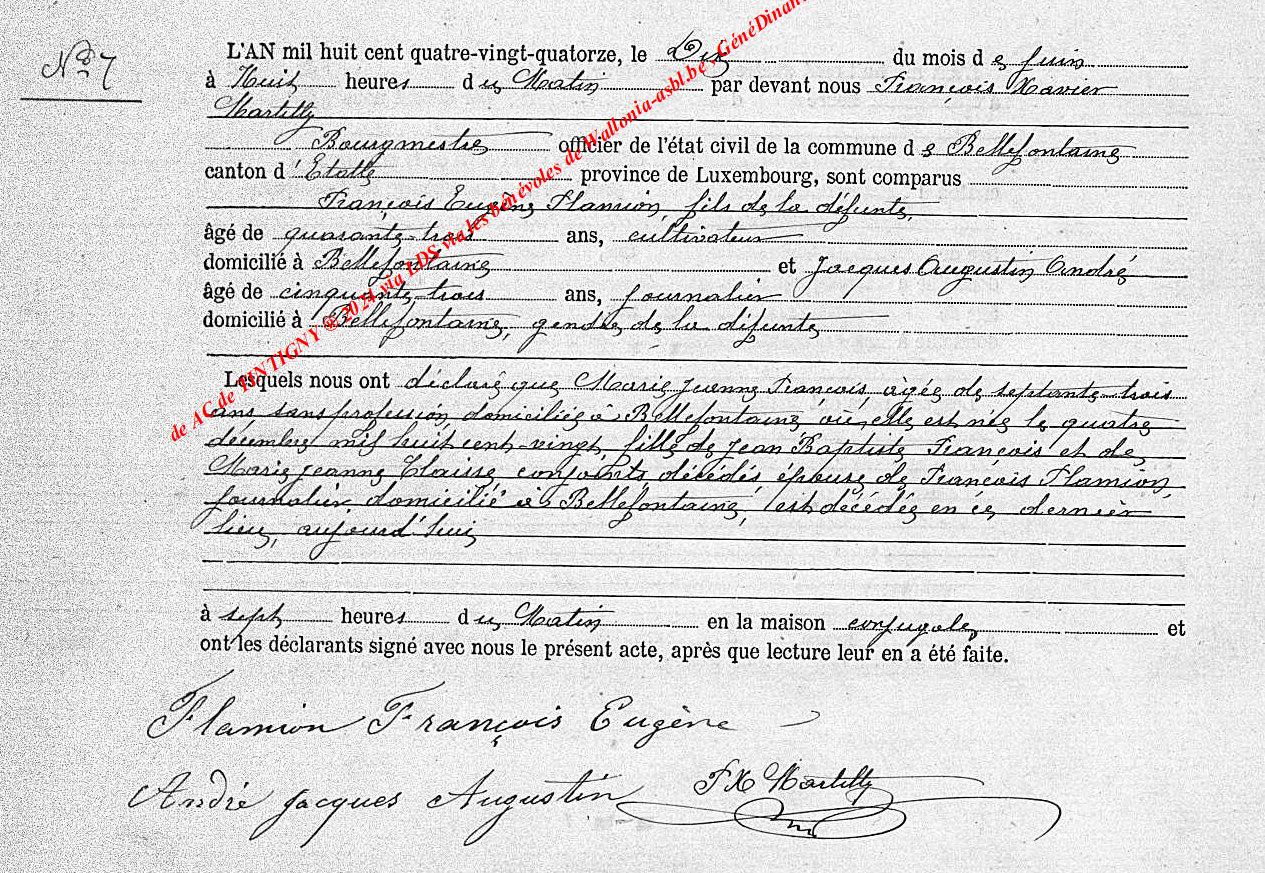 N° 7
L'AN mil huit cent quatre-vingt-quatorze, le Dix du mois de Juin
à Huit heures du Matin par devant nous François Xavier
Martilly
Bourgmestre officier de l'état civil de la commune de Bellefontaine
canton d'Etalle province de Luxembourg, sont comparus
François Eugène Flamion, fils de la défunte,
âgé de quarante-trois ans, cultivateur
domicilié à Bellefontaine et Jacques Augustin André
âgé de cinquante-trois ans, journalier
domicilié à Bellefontaine, gendre de la défunte
Lesquels nous ont déclaré que Marie Jeanne François, agée de septante-trois
ans sans profession, domiciliée à Bellefontaine, où elle est née le quatre
décembre mil huit cent vingt, fille de Jean Baptiste François et de
Marie Jeanne Claisse, conjoints, décédés, épouse de François Flamion,
journalier, domicilié à Bellefontaine, est décédée en ce dernier
lieu, aujourd'hui
à sept heures du Matin en la maison conjugale, et
ont les déclarants signé avec nous le présent acte, après que lecture leur en a été faite.
Flamion François Eugène
André Jacques Augustin
FX Martilly
de AC de TINTIGNY @ 2024 via LDS via les bénévoles de Wallonia-asbl.be - GénéDinant